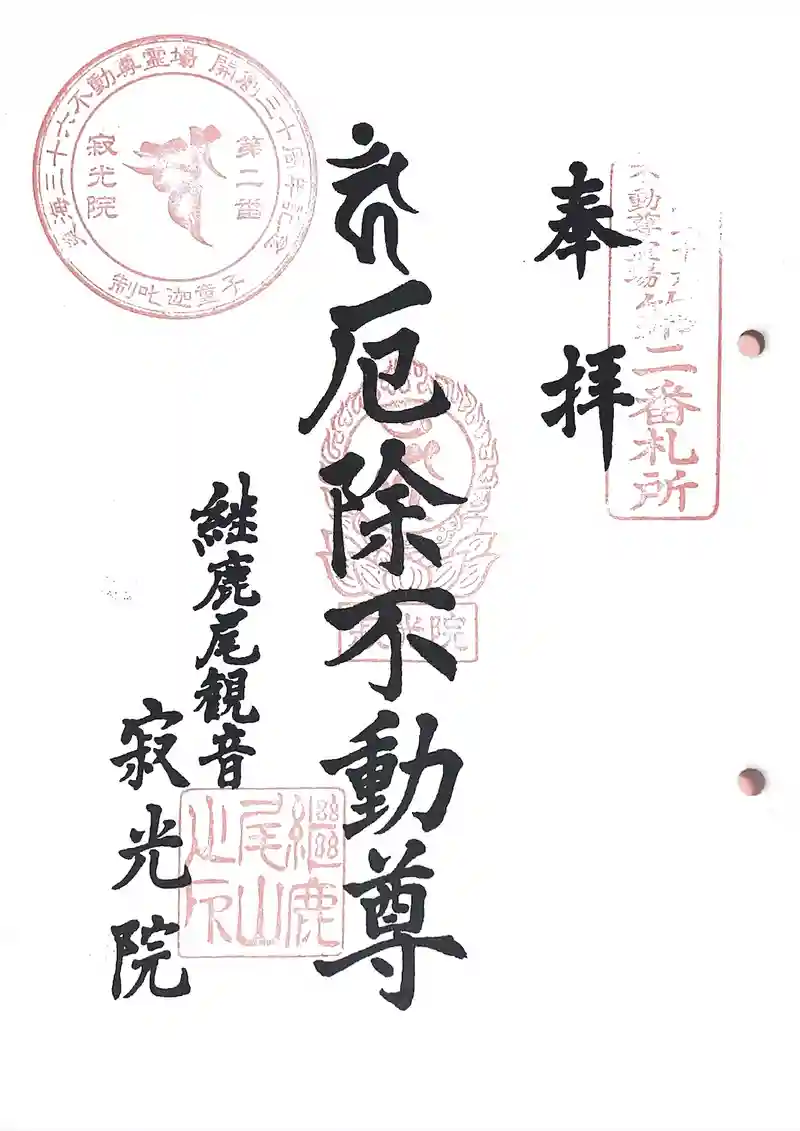 奉拝
不動尊霊場
二番札所
厄除不動尊
寂光院
継鹿尾観音
寂光院
継鹿
尾山
之印
三十六不動尊霊場 開創三十周年記念
第二番
寂光院
制吒迦童子